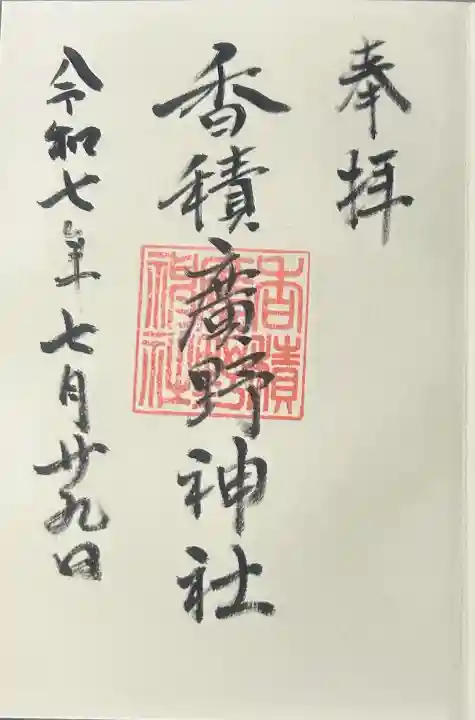 奉拝
香積廣野神社
令和七年七月廿九日
香積
廣野
神社